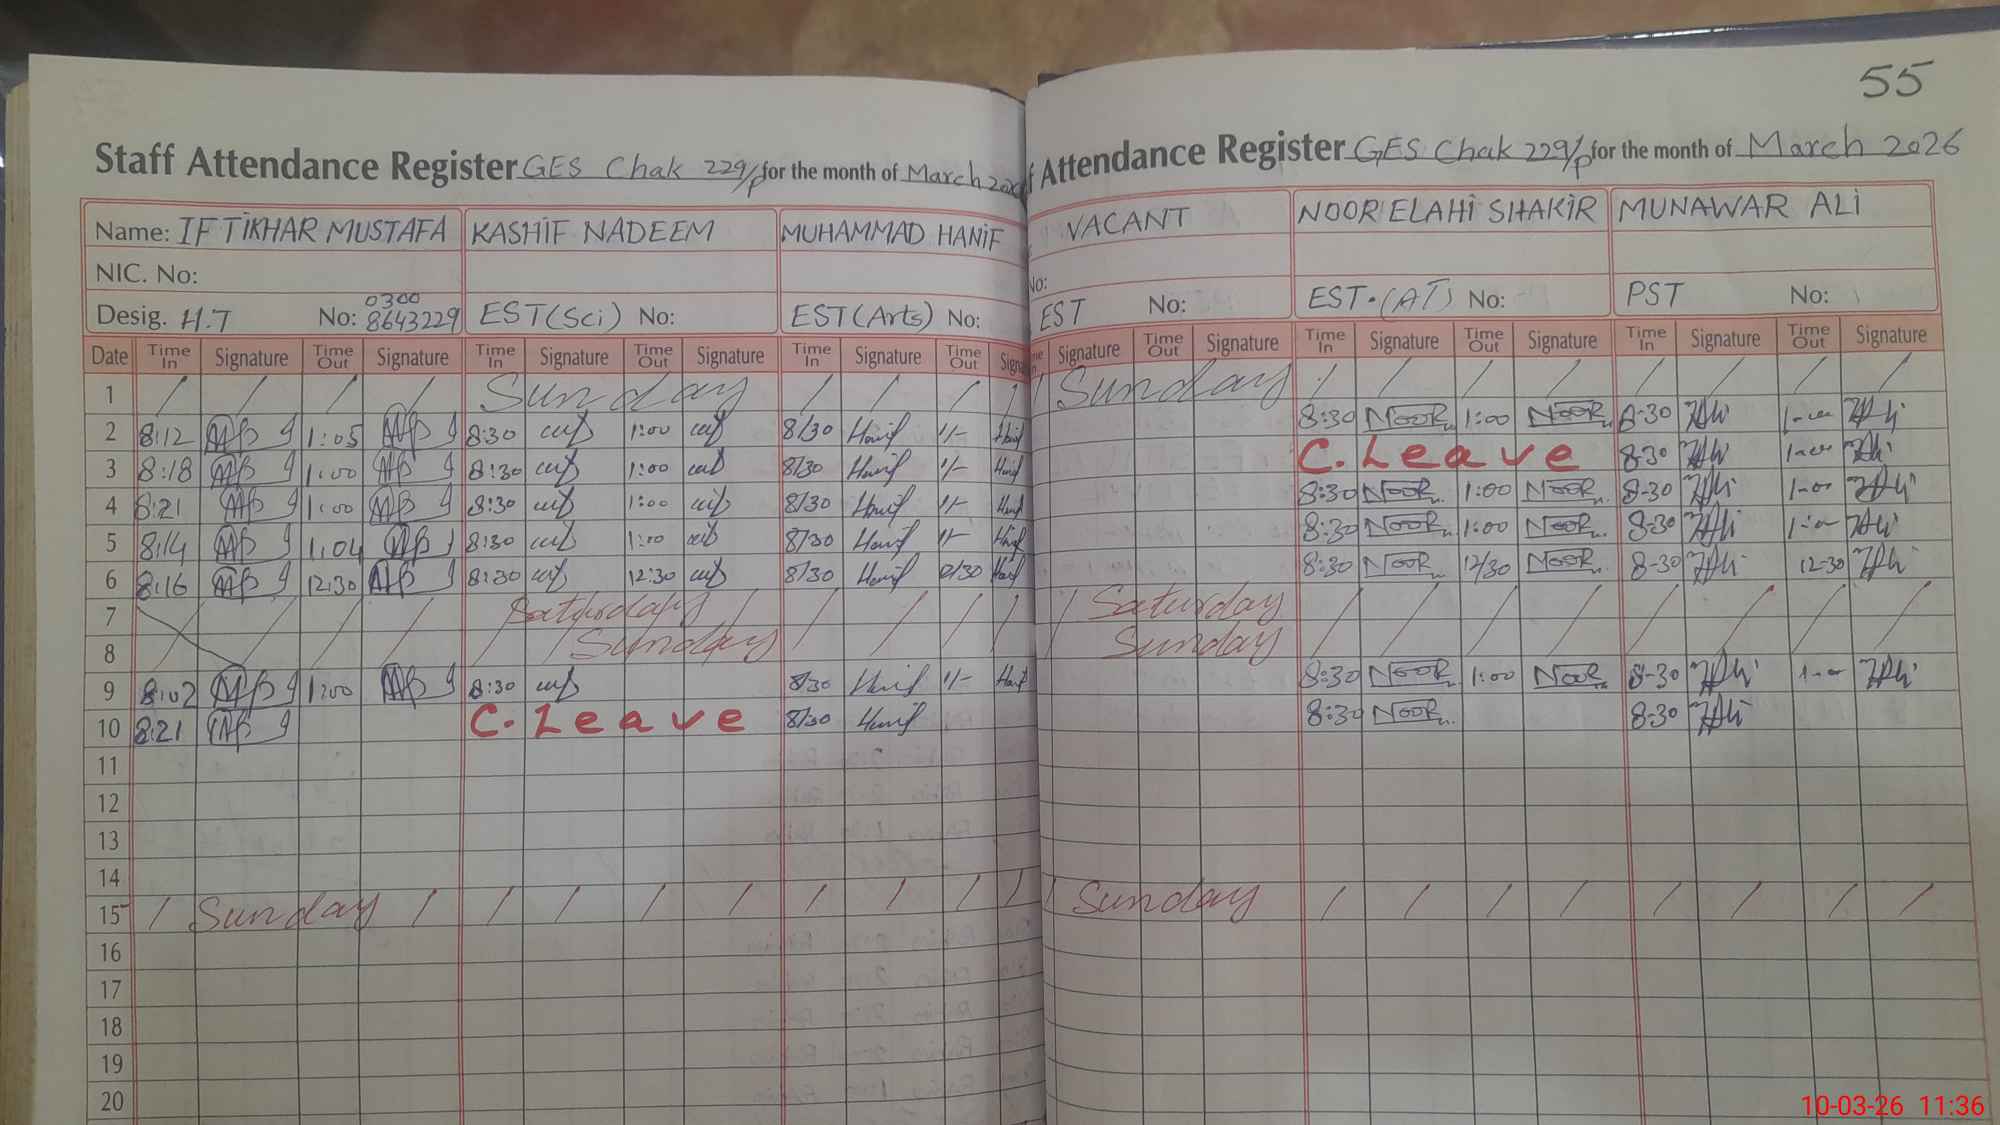 55
Staff Attendance Register GES Chak 229/P for the month of March
Attendance Register GES Chak 229/P for the month of March 2026
Name: IFTIKHAR MUSTAFA KASHIF NADEEM MUHAMMAD HANIF VACANT NOOR ELAHI SHAKIR MUNAWAR ALI
NIC. No: No:
Desig. H.T No: 0300 8643229 EST(Sci) No: EST(Arts) No: EST No: EST.(AT) No: PST No:
Date Time In Signature Time Out Signature Time In Signature Time Out Signature Time In Signature Time Out Signature Time Out Signature Time In Signature Time Out Signature Time In Signature Time Out Signature
1 / / / / Sunday / / / / / Sunday / / / / / / / /
2 8:12 1:05 8:30 1:00 8/30 Hanif 1/- Hanif 8:30 NOOR 1:00 NOOR 8-30 1-00
3 8:18 1:00 8:30 1:00 8/30 Hanif 1/- Hanif C. Leave 8-30 1-00
4 8:21 1:00 8:30 1:00 8/30 Hanif 1/- Hanif 8:30 NOOR 1:00 NOOR 8-30 1-00
5 8:14 1:04 8:30 1:00 8/30 Hanif 1/- Hanif 8:30 NOOR 1:00 NOOR 8-30
6 8:16 12:30 8:30 12:30 8/30 Hanif Hanif 8:30 NOOR 12/30 NOOR 8-30 12-30
7 / / / / Saturday / / / / / / Saturday / / / / / / / /
8 Sunday Sunday
9 8:02 1:00 8:30 8/30 Hanif 1/- Hanif 8:30 NOOR 1:00 NOOR 8-30 1-00
10 8:21 C. Leave 8/30 Hanif 8:30 NOOR 8-30
11
12
13
14
15 / Sunday / / / / / / / / / / Sunday / / / / / / / /
16
17
18
19
20
10-03-26 11:36